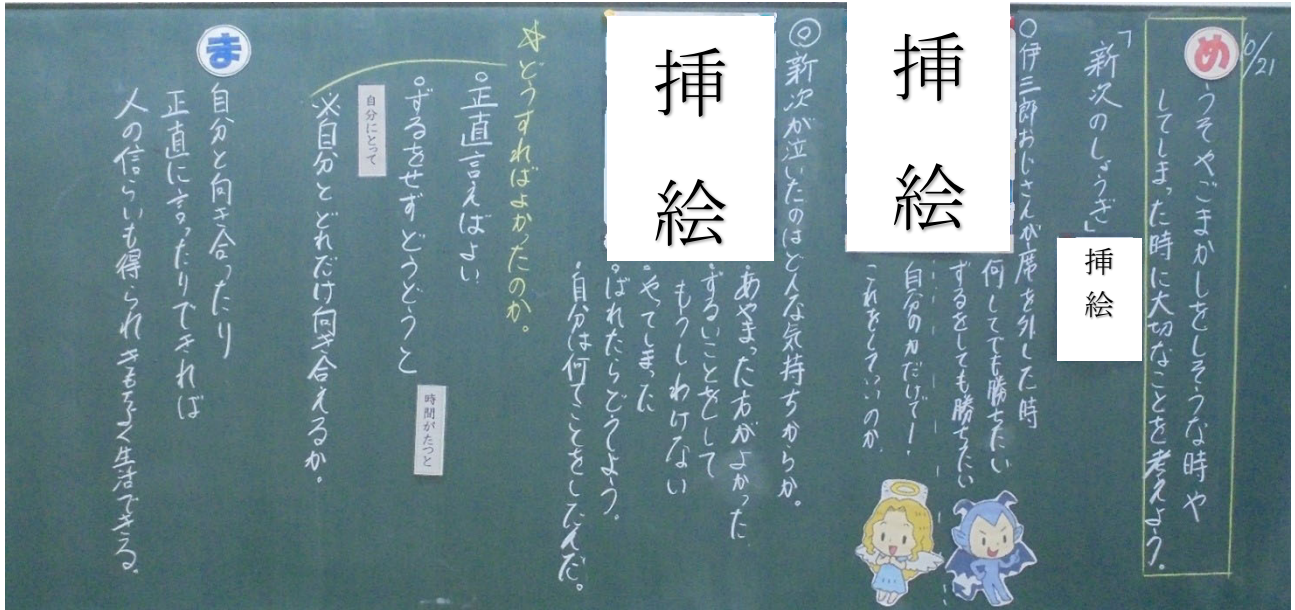 10/21
め
うそやごまかしをしそうな時や
してしまった時に大切なことを考えよう。
「新次のしょうぎ」
挿絵
○伊三郎おじさんが席を外した時
挿絵
何してでも勝ちたい
ずるをしても勝ちたい
自分の力だけで!
これをしていいのか
◎新次が泣いたのはどんな気持ちからか。
挿絵
・あやまった方がよかった
・ずるいことをして
もうしわけない
・やってしまった
・ばれたらどうしよう。
・自分は何てことをしたんだ。
☆どうすればよかったのか。
○正直言えばよい
○ずるをせずどうどうと
時間がたつと
自分にとって
※自分とどれだけ向き合えるか。
ま
自分と向き合ったり
正直に言ったりできれば
人の信らいも得られきもちよく生活できる。